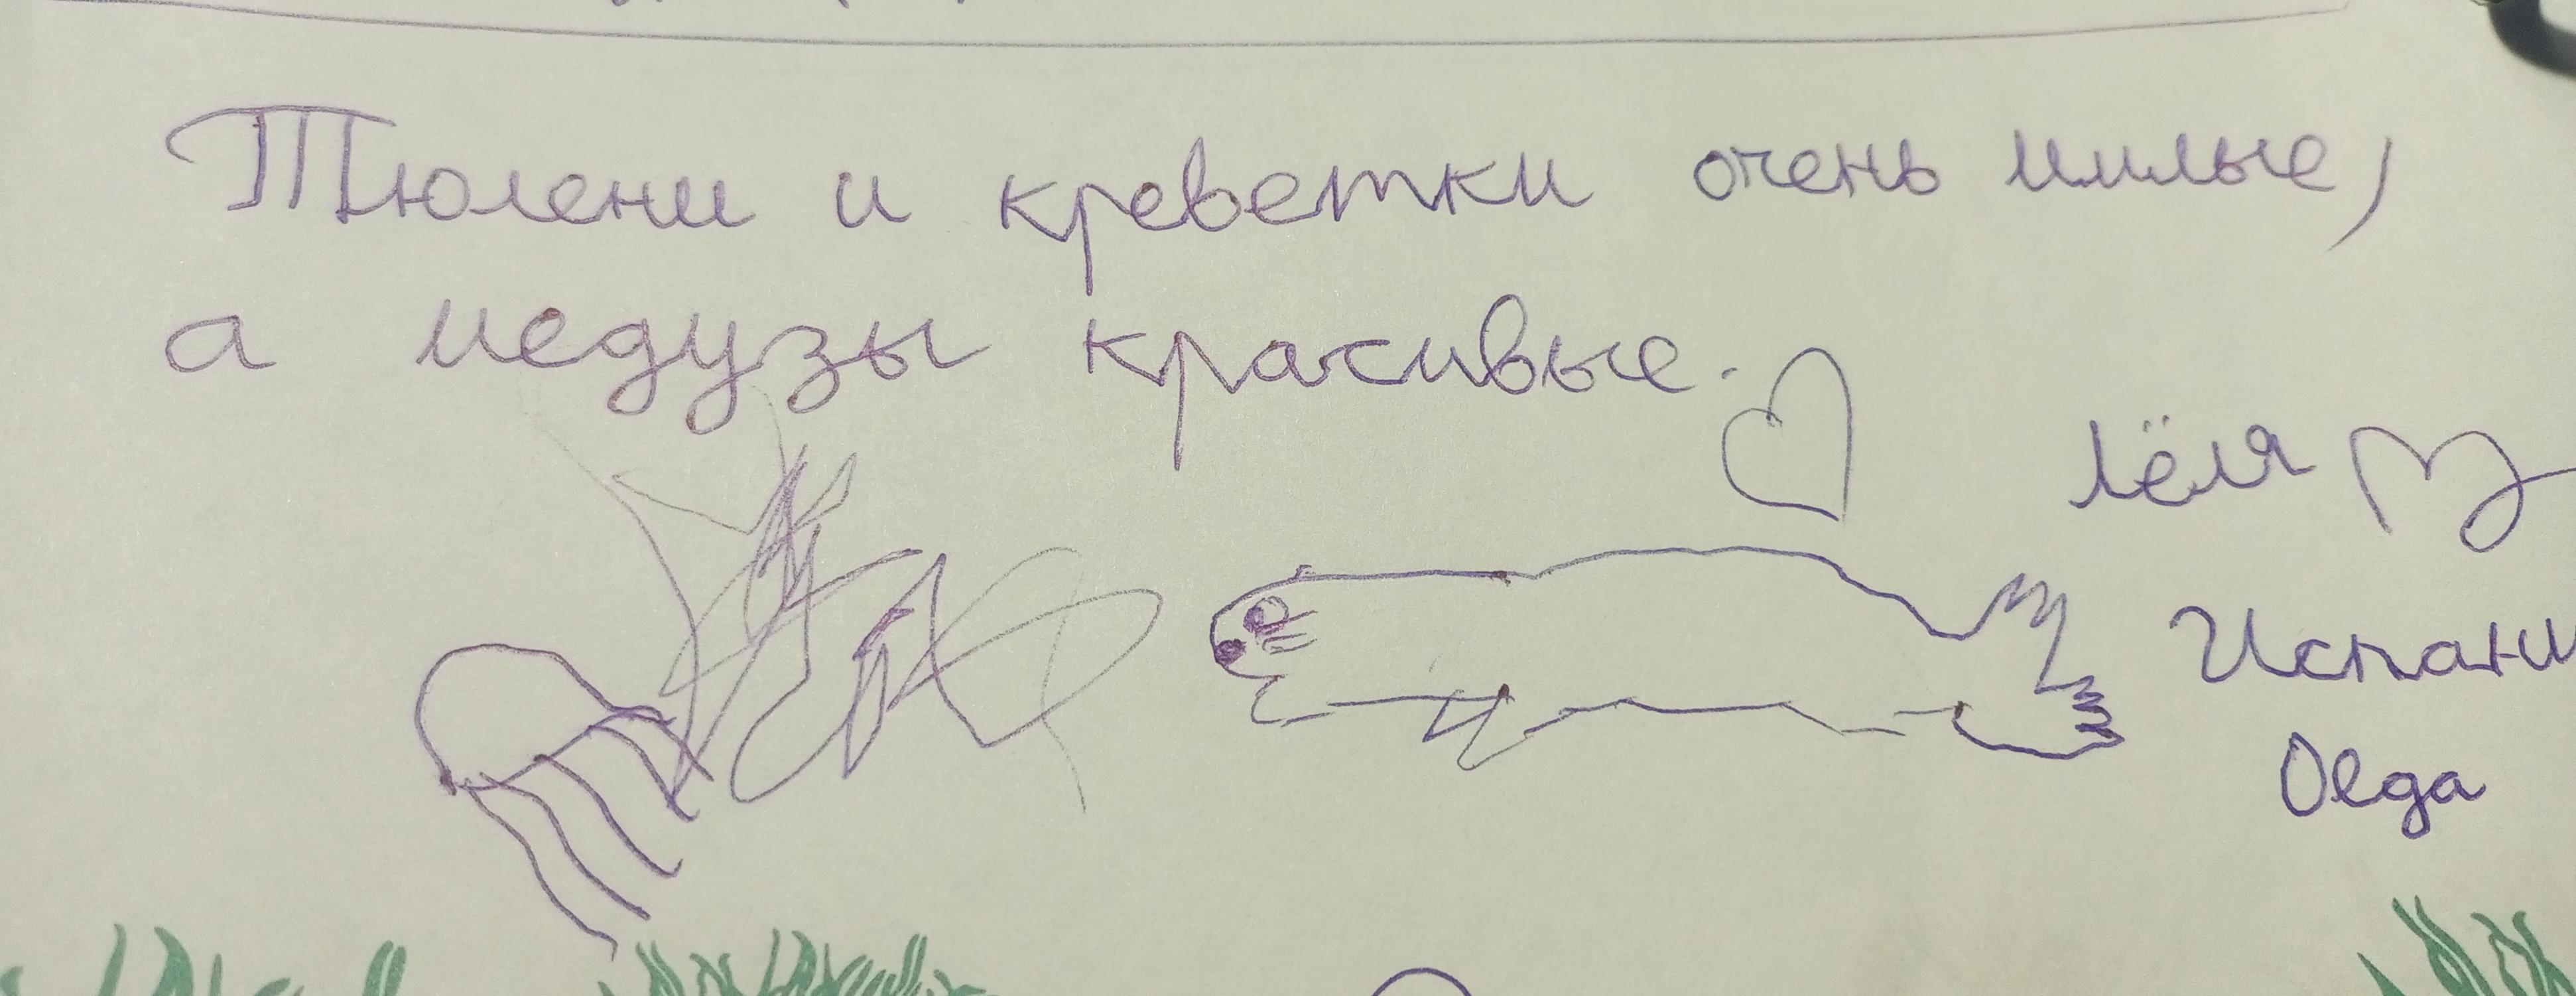 Тюлени и креветки очень милые,
а медузы красивые.
Лёля
Испани
Olga